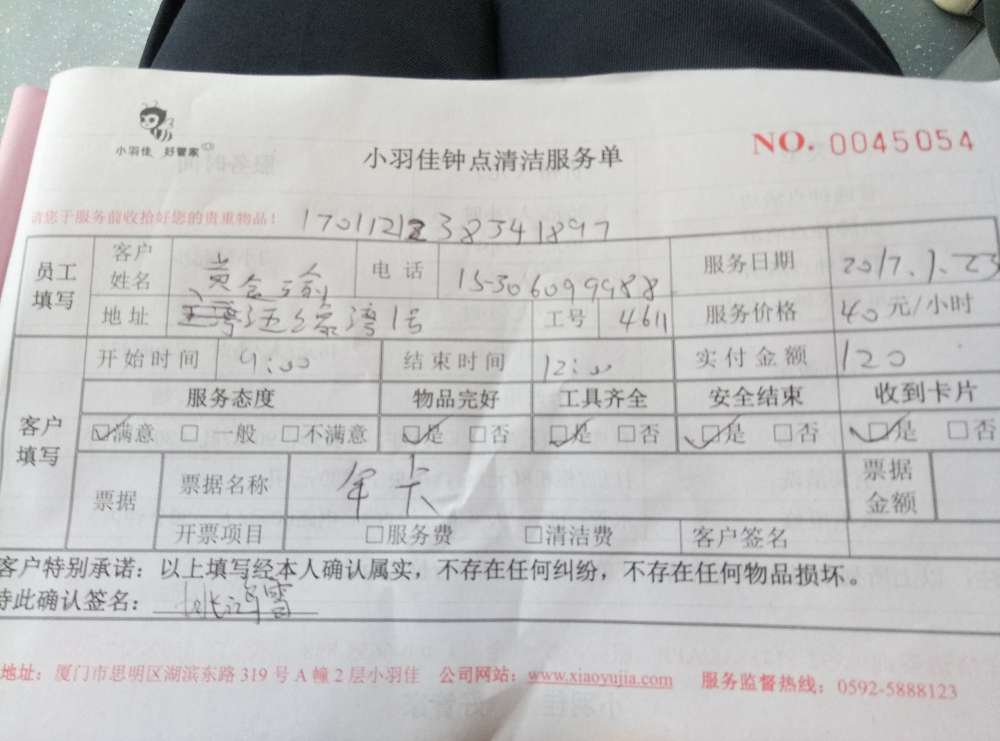 小羽佳 好管家
小羽佳钟点清洁服务单
NO. 0045054
请您于服务前收拾好您的贵重物品!
17011212383541897
员工填写 客户姓名 黄 电话 15306099988 服务日期 2017.1.23
地址 湾1号 工号 4611 服务价格 40元/小时
客户填写 开始时间 9:00 结束时间 12:00 实付金额 120
服务态度 物品完好 工具齐全 安全结束 收到卡片
☑满意 □一般 □不满意 ☑是 □否 ☑是 □否 ☑是 □否 ☑是 □否
票据 票据名称 年卡 票据金额
开票项目 □服务费 □清洁费 客户签名
客户特别承诺:以上填写经本人确认属实,不存在任何纠纷,不存在任何物品损坏。
特此确认签名:
地址:厦门市思明区湖滨东路319号A幢2层小羽佳 公司网站:www.xiaoyujia.com 服务监督热线:0592-5888123